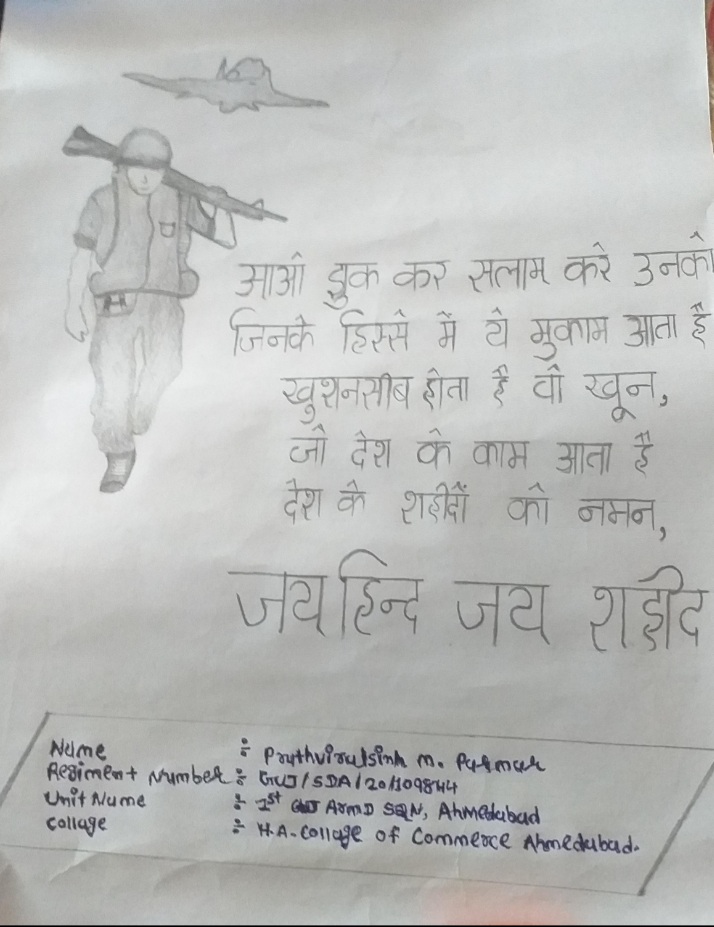 आओ झुक कर सलाम करे उनको
जिनके हिस्से में ये मुकाम आता है
खुशनसीब होता है वो खून,
जो देश के काम आता है
देश के शहीदों को नमन,
जय हिन्द जय शहीद
Name : Pruthvirajsinh m. Parmar
Regiment Number : GUJ/SDA/20/109844
Unit Name : 1st GUJ ARMD SQN, Ahmedabad
Collage : H.A. Collage of Commerce Ahmedabad.